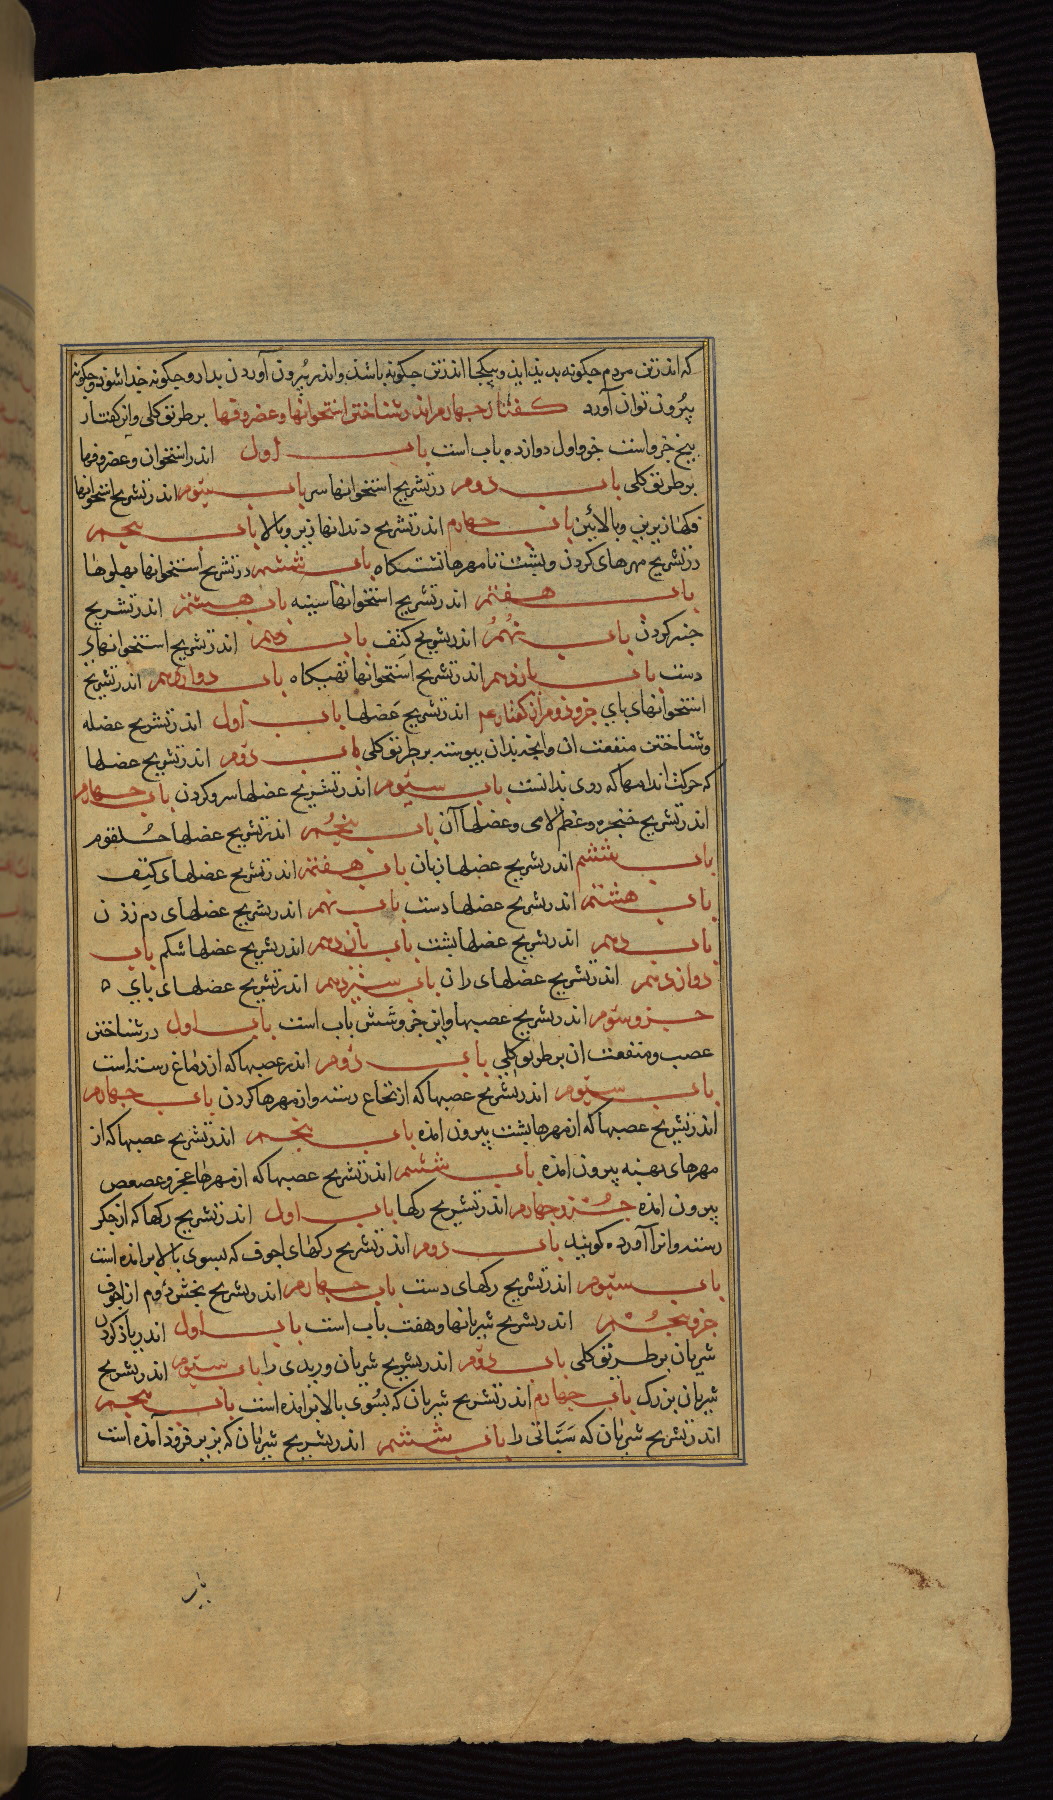 که اندر تن مردم چکونه بدید اید و بیکجا اندر تن چکونه باشد و اندر بیرون آوردن بدارو چکونه جدا شود و چکونه
بیرون توان آورد کفتار چهارم اندر شناختن استخوانها و غضروفها بر طریق کلی و این کفتار
پنج جزو است جزو اول دوازده باب است باب اول اندر استخوان و غضروفها
بر طریق کلی باب دوم در تشریح استخوانها سر باب سیّوم اندر تشریح استخوانها
فکها زیرین و بالائین باب چهارم اندر تشریح دندانها زیر و بالا باب پنجم
در تشریح مهرهای کردن و پشت تا مهرها نشستکاه باب ششم در تشریح استخوانها پهلوها
باب هفتم اندر تشریح استخوانها سینه باب هشتم اندر تشریح
جنبر کردن باب نهم اندر تشریح کتف باب دهم اندر تشریح استخوانهای
دست باب یازدهم اندر تشریح استخوانها تهیکاه باب دوازدهم اندر تشریح
استخوانهای پای جزو دوم از کفتار اندر تشریح عضلها باب اول اندر تشریح عضله
و شناختن منفعت ان و انچه بدان پیوسته بر طریق کلی باب دوّم اندر تشریح عضلها
که حرکت اندامها که روی بدانست باب سیّوم اندر تشریح عضلها سر و کردن باب چهارم
اندر تشریح حنجره و عظم لامی و عضلها آن باب پنجم اندر تشریح عضلها حلقوم
باب ششم اندر تشریح عضلها زبان باب هفتم اندر تشریح عضلهای کتف
باب هشتم اندر تشریح عضلها دست باب نهم اندر تشریح عضلهای دم زدن
باب دهم اندر تشریح عضلها پشت باب یازدهم اندر تشریح عضلها شکم باب
دوازدهم اندر تشریح عضلهای ران باب سیزدهم اندر تشریح عضلهای پای ه
جزو سیّوم اندر تشریح عصبها و این جزو شش باب است باب اول در شناختن
عصب و منفعت ان بر طریق کلی باب دوم اندر عصبها که از دماغ رسته است
باب سیّوم اندر تشریح عصبها که از نخاع رسته و از مهرها کردن باب چهارم
اندر تشریح عصبها که از مهرها پشت بیرون امده باب پنجم اندر تشریح عصبها که از
مهرهای بیرون امده باب ششم اندر تشریح عصبها که از مهرها عجز و عصعص
بیرون امده جزو چهارم اندر تشریح رکها باب اول اندر تشریح رکها که از جکر
رسته و انرا آورده کویند باب دوم اندر تشریح رکهای اجوف که بسوی بالا بر امده است
باب سیّوم اندر تشریح رکهای دست باب چهارم اندر تشریح بخش دوم از اجوف
جزو پنجم اندر تشریح شریانها و هفت باب است باب اول اندر یاذ کردن
شریان بر طریق کلی باب دوّم اندر تشریح شریان وریدی را باب سیّوم اندر تشریح
شریان بزرک باب چهارم اندر تشریح شریان که بسوی بالا بر امده است باب پنجم
اندر تشریح شریان که سباتی را باب ششم اندر تشریح شریان که بزیر فروذ آمده است
باب